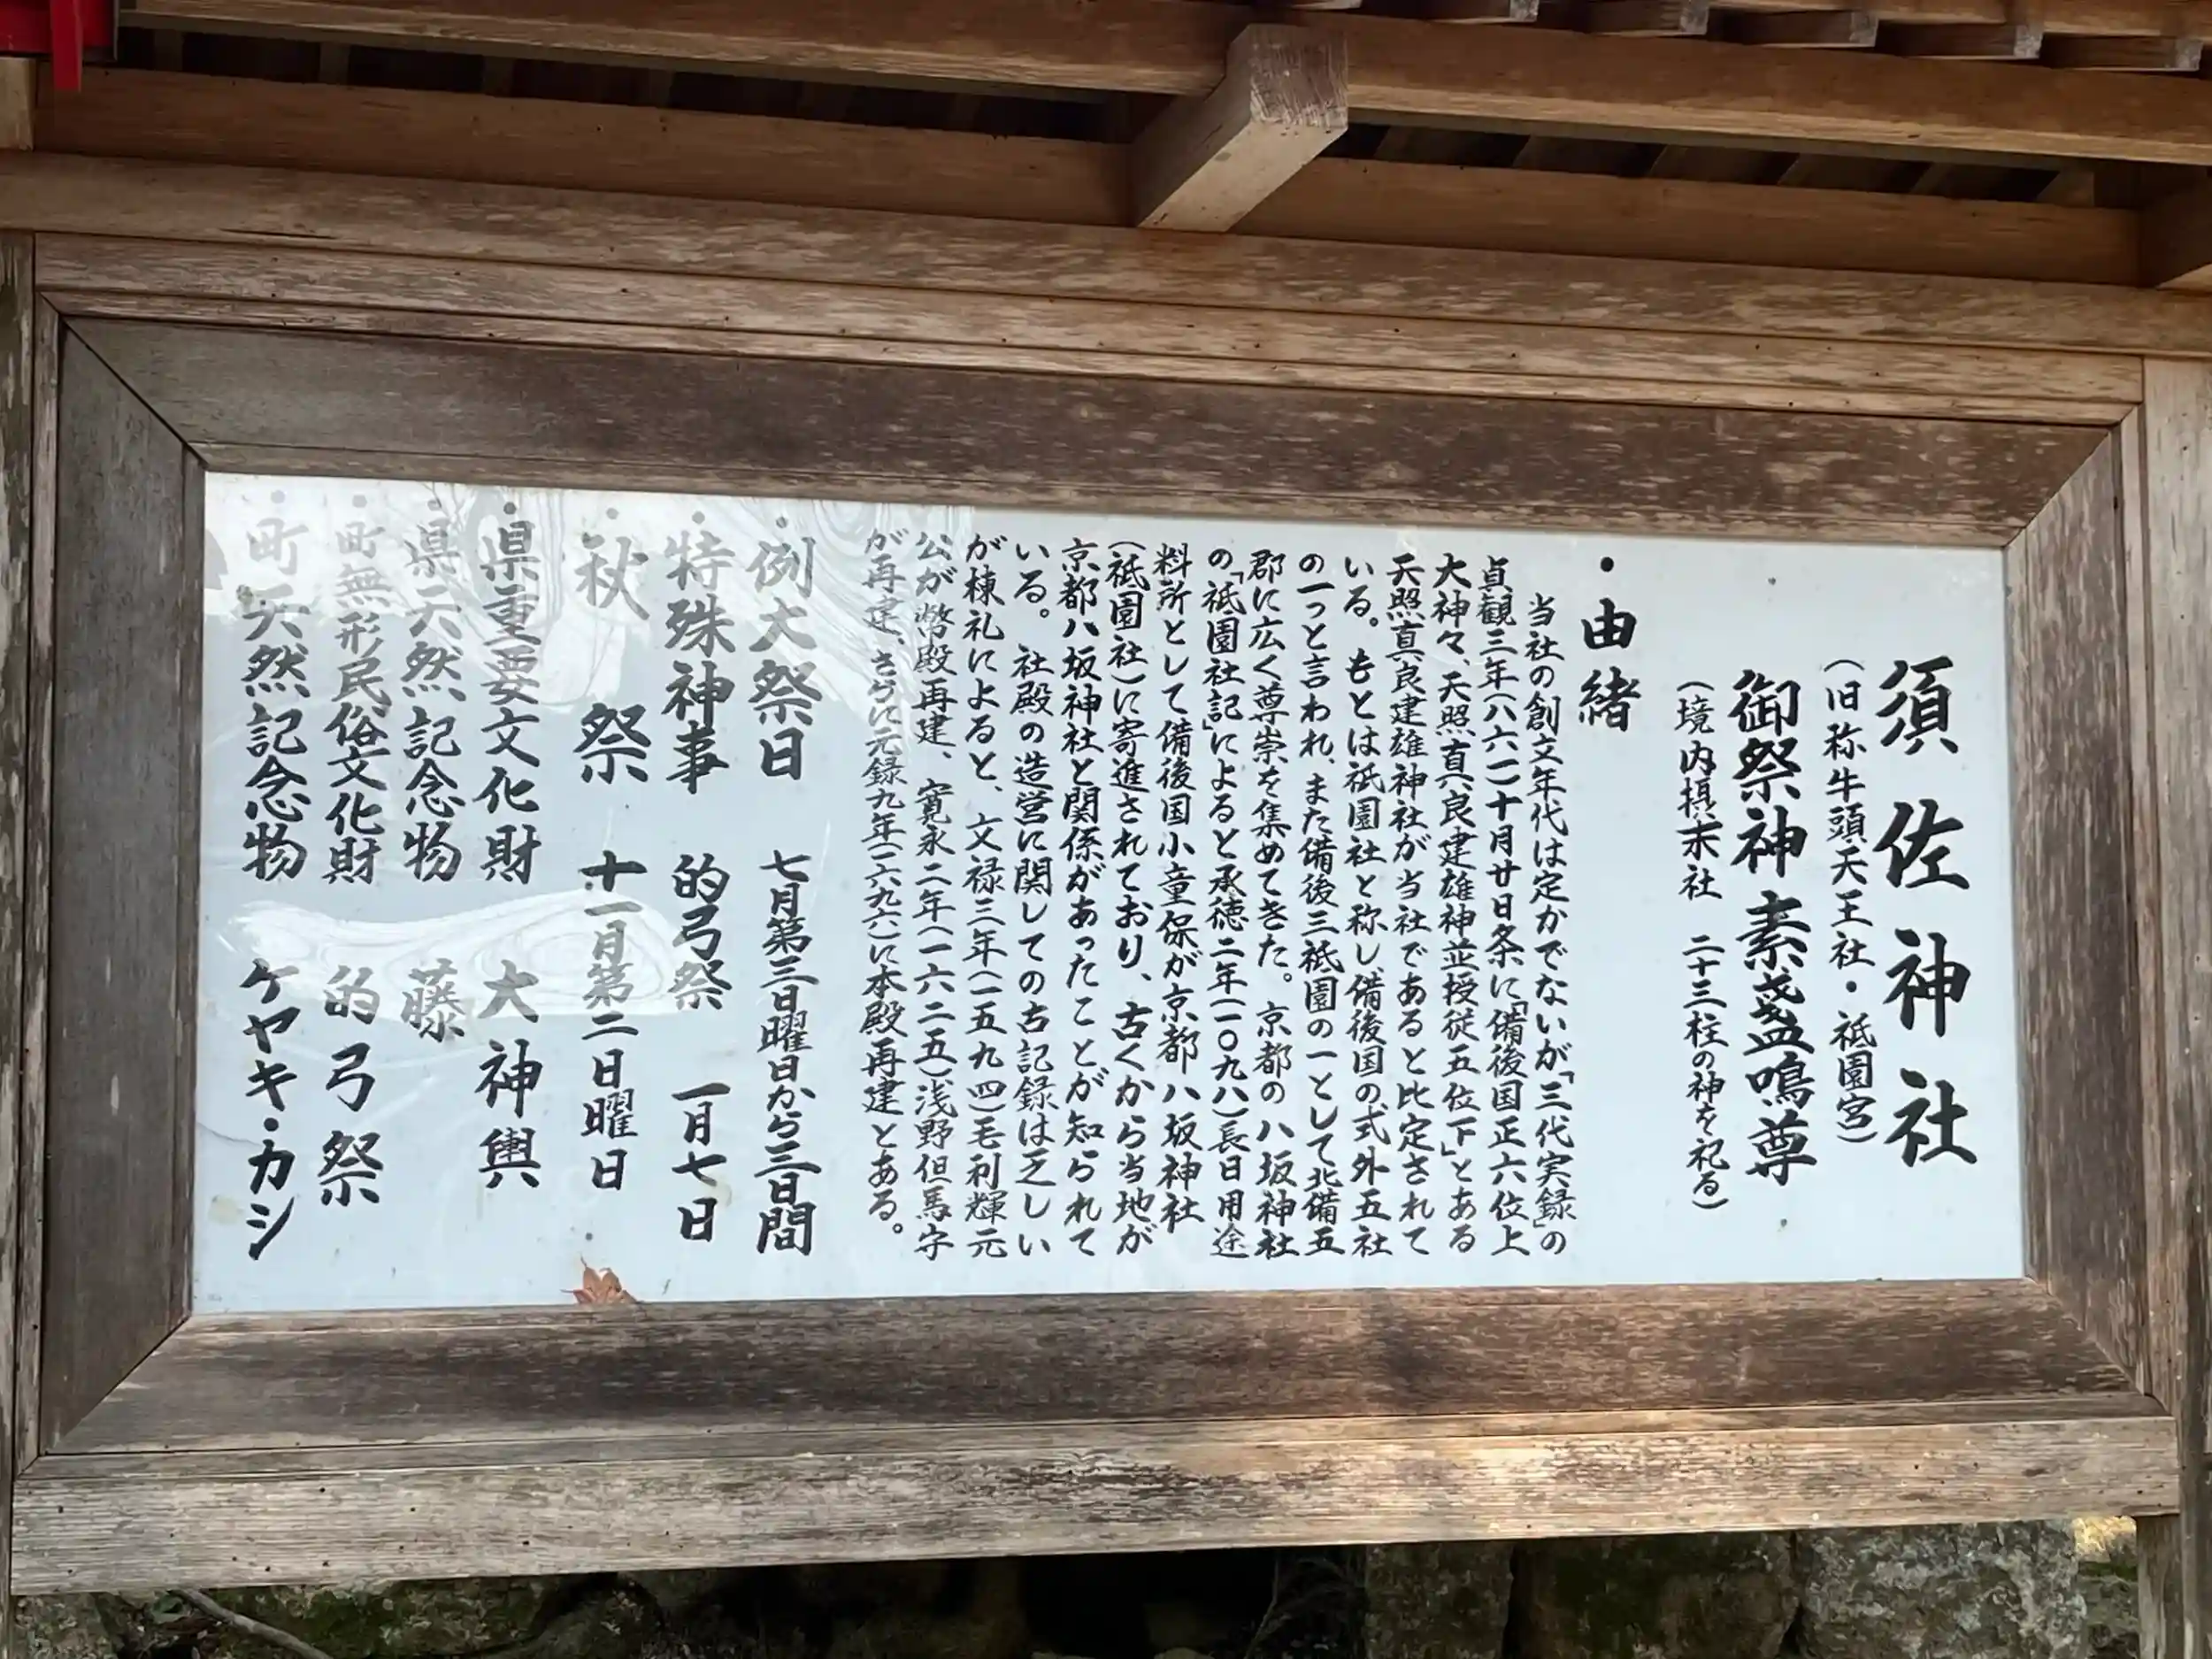 須佐神社
(旧称牛頭天王社・祗園宮)
御祭神 素盞嗚尊
(境内摂末社 二十三柱の神を祀る)
・由緒
当社の創立年代は定かでないが「三代実録」の
貞観三年(八六一)十月廿日条に「備後国正六位上
大神々、天照真良建雄神並授従五位下」とある
天照真良建雄神社が当社であると比定されて
いる。もとは祗園社と称し備後国の式外五社
の一っと言われ、また備後三祗園の一として北備五
郡に広く尊崇を集めてきた。京都の八坂神社
の「祗園社記」によると承徳二年(一〇九八)長日用途
料所として備後国小童保が京都八坂神社
(祗園社)に寄進されており、古くから当地が
京都八坂神社と関係があったことが知られて
いる。社殿の造営に関しての古記録は乏しい
が棟礼によると、文禄三年(一五九四)毛利輝元
公が幣殿再建、寛永二年(一六二五)浅野但馬守
が再建、さらに元録九年(一六九六)に本殿再建とある。
・例大祭日 七月第三日曜日から三日間
・特殊神事 的弓祭 一月七日
・秋祭 十一月第二日曜日
・県重要文化財 大神輿
・県天然記念物 藤
・町無形民俗文化財 的弓祭
・町天然記念物 ケヤキ・カシ